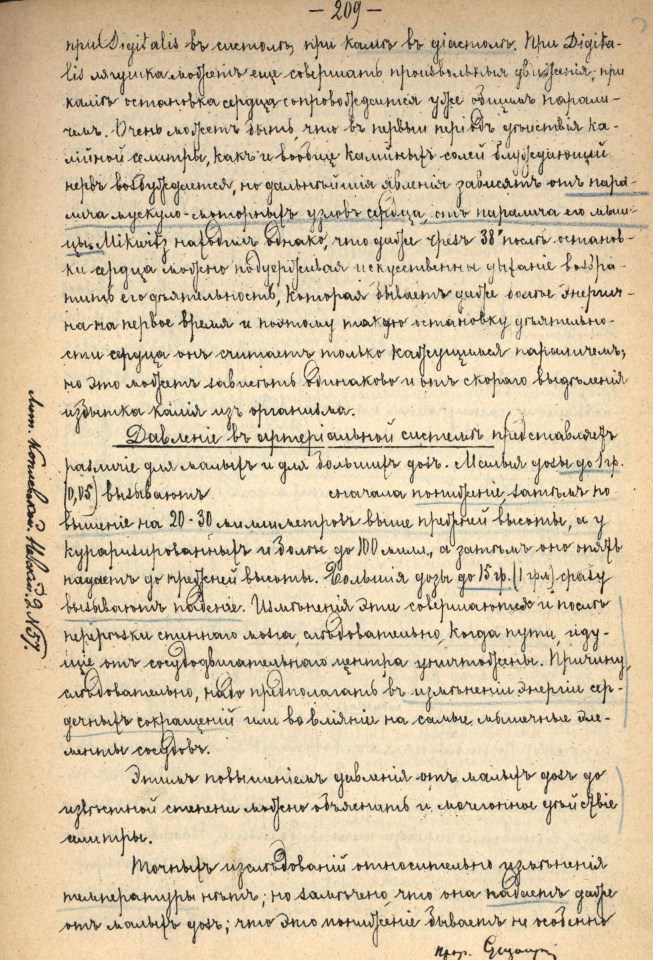 — 209 —
при Digitalis въ систолѣ, при каліѣ въ діастолѣ. При Digita-
lis лягушка можетъ еще совершать произвольныя движенія, при
каліѣ остановка сердца сопровождается уже общимъ парали-
чемъ. Очень можетъ быть, что въ первый періодъ дѣйствія ка-
лійной селитры, какъ и вообще калійныхъ солей блуждающій
нервъ возбуждается, но дальнѣйшія явленія зависятъ отъ пара-
лича мускуло-моторныхъ узловъ сердца, отъ паралича его мыш-
цы. Mikwitz находилъ однако, что даже чрезъ 38" послѣ останов-
ки сердца можно поддерживая искусственны дыханіе возвра-
тить его дѣятельность, которая бываетъ даже болѣе энергич-
на на первое время и поэтому такую остановку дѣятельно-
сти сердца онъ считаетъ только кажущимся параличемъ;
но это можетъ зависѣть одинаково и отъ скораго выдѣленія
избытка калія изъ организма.
Давленіе въ артеріальной системѣ представляетъ
различіе для малыхъ и для большихъ дозъ. Малыя дозы до 1 гр.
(0,05) вызываютъ сначала пониженіе, затѣмъ по
вышеніе на 20-30 миллиметровъ выше прежней высоты, а у
кураризированныхъ и болѣе до 100 милл., а затѣмъ оно опять
падаетъ до прежней высоты. Большія дозы до 15 гр. (1 грм.) сразу
вызываютъ паденіе. Измѣненія эти совершаются и послѣ
перерѣзки спиннаго мозга, слѣдовательно, когда пути, иду-
щіе отъ сосудодвигательнаго центра уничтожены. Причину,
слѣдовательно, надо предполагать въ измѣненіи энергіи сер-
дечныхъ сокращеній или во вліяніе на самые мышечные эле-
менты сосудовъ.
Этимъ повышеніемъ давленія отъ малыхъ дозъ до
извѣстной степени можно объяснить и мочегонное дѣйствіе
селитры.
Точныхъ изслѣдованій относительно измѣненія
температуры нѣтъ; но замѣчено, что она падаетъ даже
отъ малыхъ дозъ; что это пониженіе бываетъ не особенно
проф.
Лит. Невскій. д. N 57.